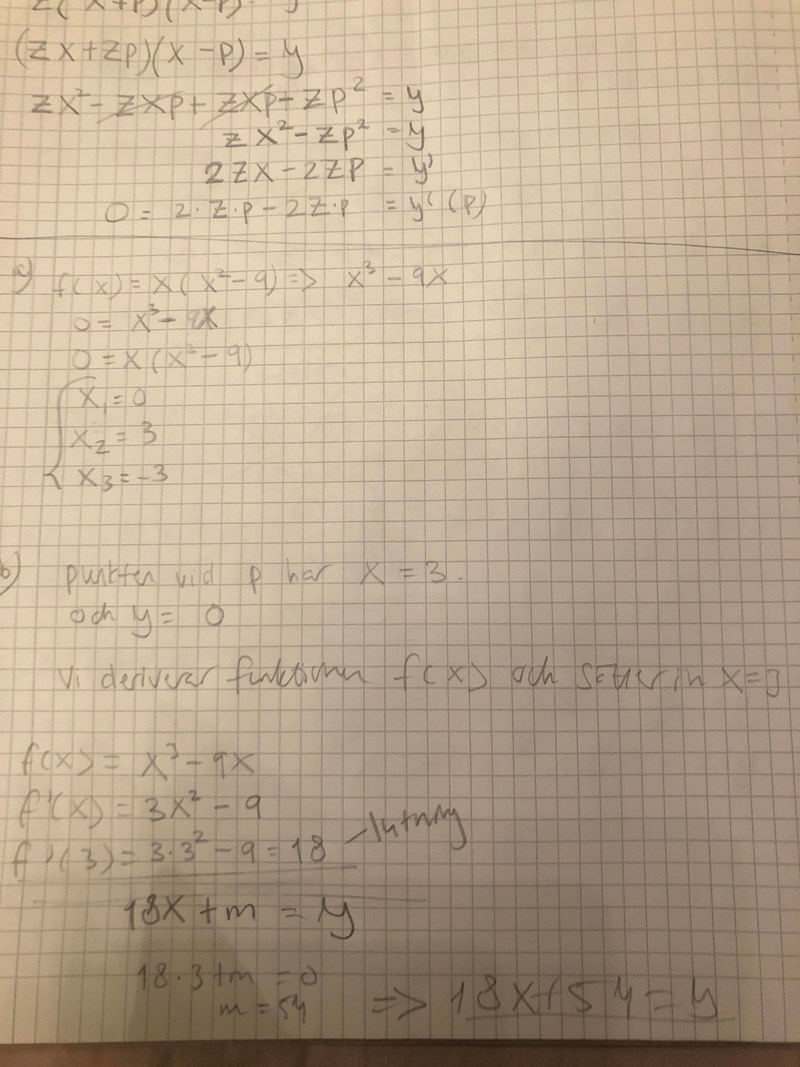 z(x+p)(x-p) y
(zx+zp)(x-p)=y
zx²-zxp+zxp-zp²=y
zx²-zp²=y
2zx-2zp=y'
0=2·z·p-2z·p=y'(p)
a) f(x)=x(x²-9)=> x³-9x
0=x³-9x
0=x(x²-9)
x₁=0
x₂=3
x₃=-3
b) punkten vid p har x=3.
och y=0
Vi deriverar funktionen f(x) och sätter in x=3
f(x)=x³-9x
f'(x)=3x²-9
f'(3)=3·3²-9=18 -lutning
18x+m=y
18·3+m=0
m=54 => 18x+54=y